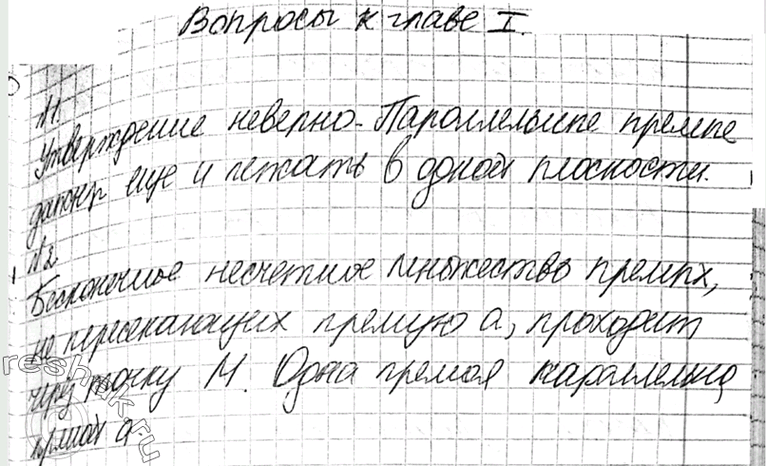 Вопросы к главе I.
N1.
Утверждение неверно. Параллельные прямые
должны еще и лежать в одной плоскости.
N2
Бесконечное несчетное множество прямых,
не пересекающих прямую а, проходит
через точку М. Одна прямая параллельна
прямой а.
reshak.ru